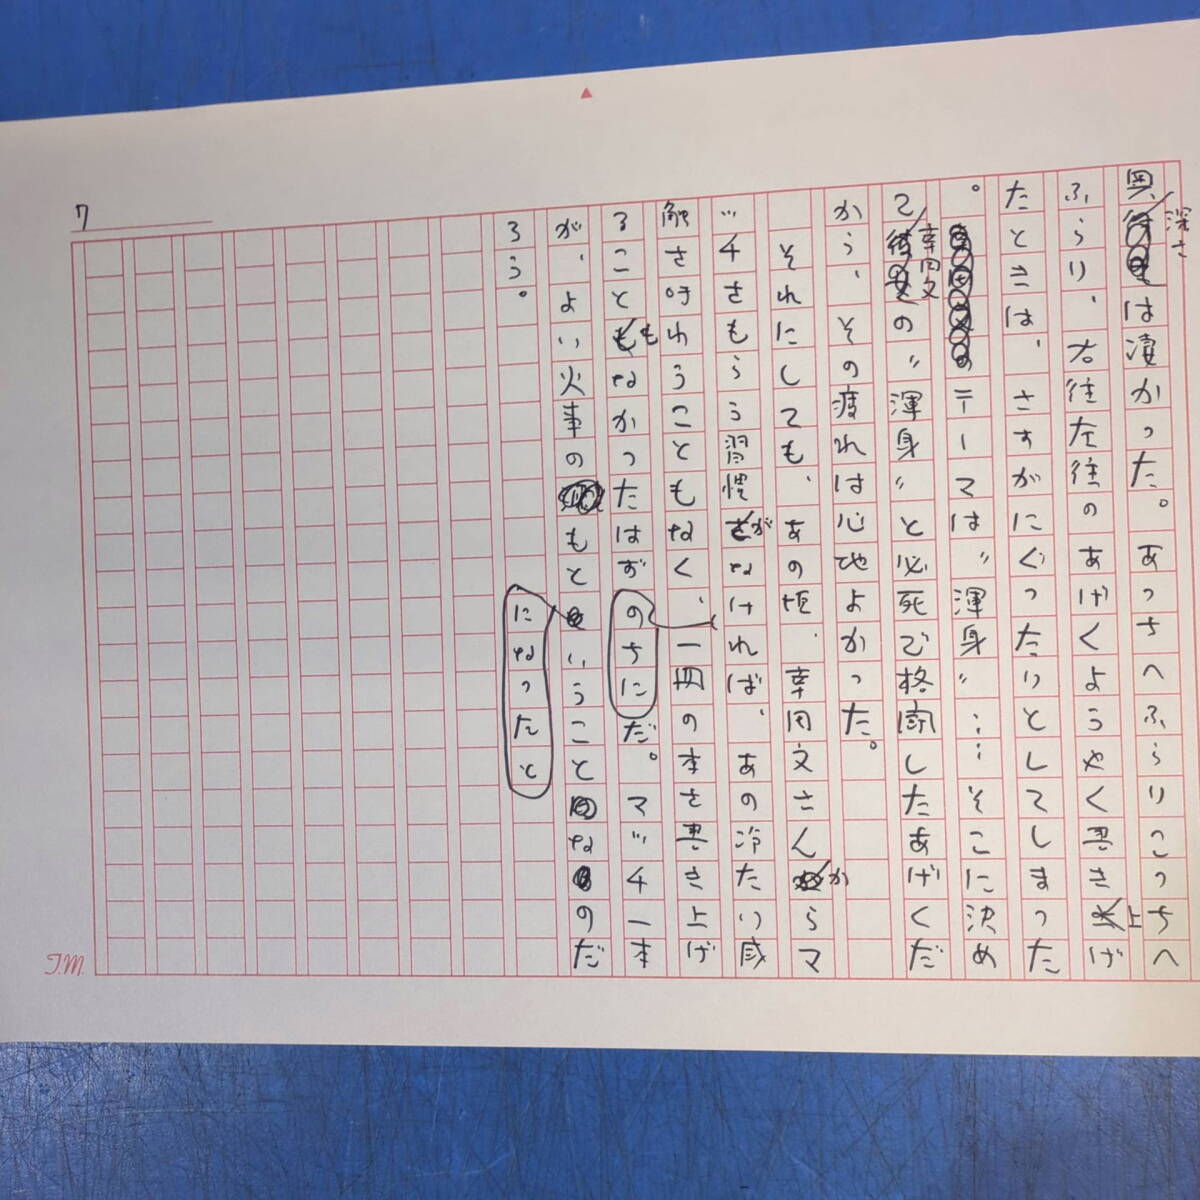 奥深さは凄かった。あっちへふらりこっちへ
ふらり、右往左往のあげくようやく書き上げ
たときは、さすがにぐったりとしてしまった
。テーマは〝渾身〟……そこに決め
て幸田文の〝渾身〟と必死で格闘したあげくだ
から、その疲れは心地よかった。
それにしても、あの頃、幸田文さんからマ
ッチをもらう習慣がなければ、あの冷たい感
触を味わうこともなく、のちに一冊の本を書き上げ
ることもなかったはずだ。マッチ一本
が、よい火事のもとになったということなのだ
ろう。
7
T.M.